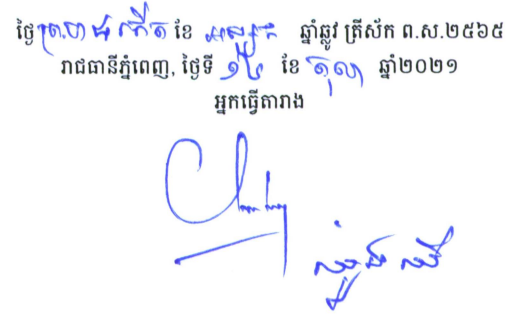 ថ្ងៃព្រហស្បតិ៍ ៩ កើត ខែ អស្សុជ ឆ្នាំឆ្លូវ ត្រីស័ក ព.ស.២៥៦៥
រាជធានីភ្នំពេញ, ថ្ងៃទី ១៤ ខែ តុលា ឆ្នាំ២០២១
អ្នកធ្វើតារាង